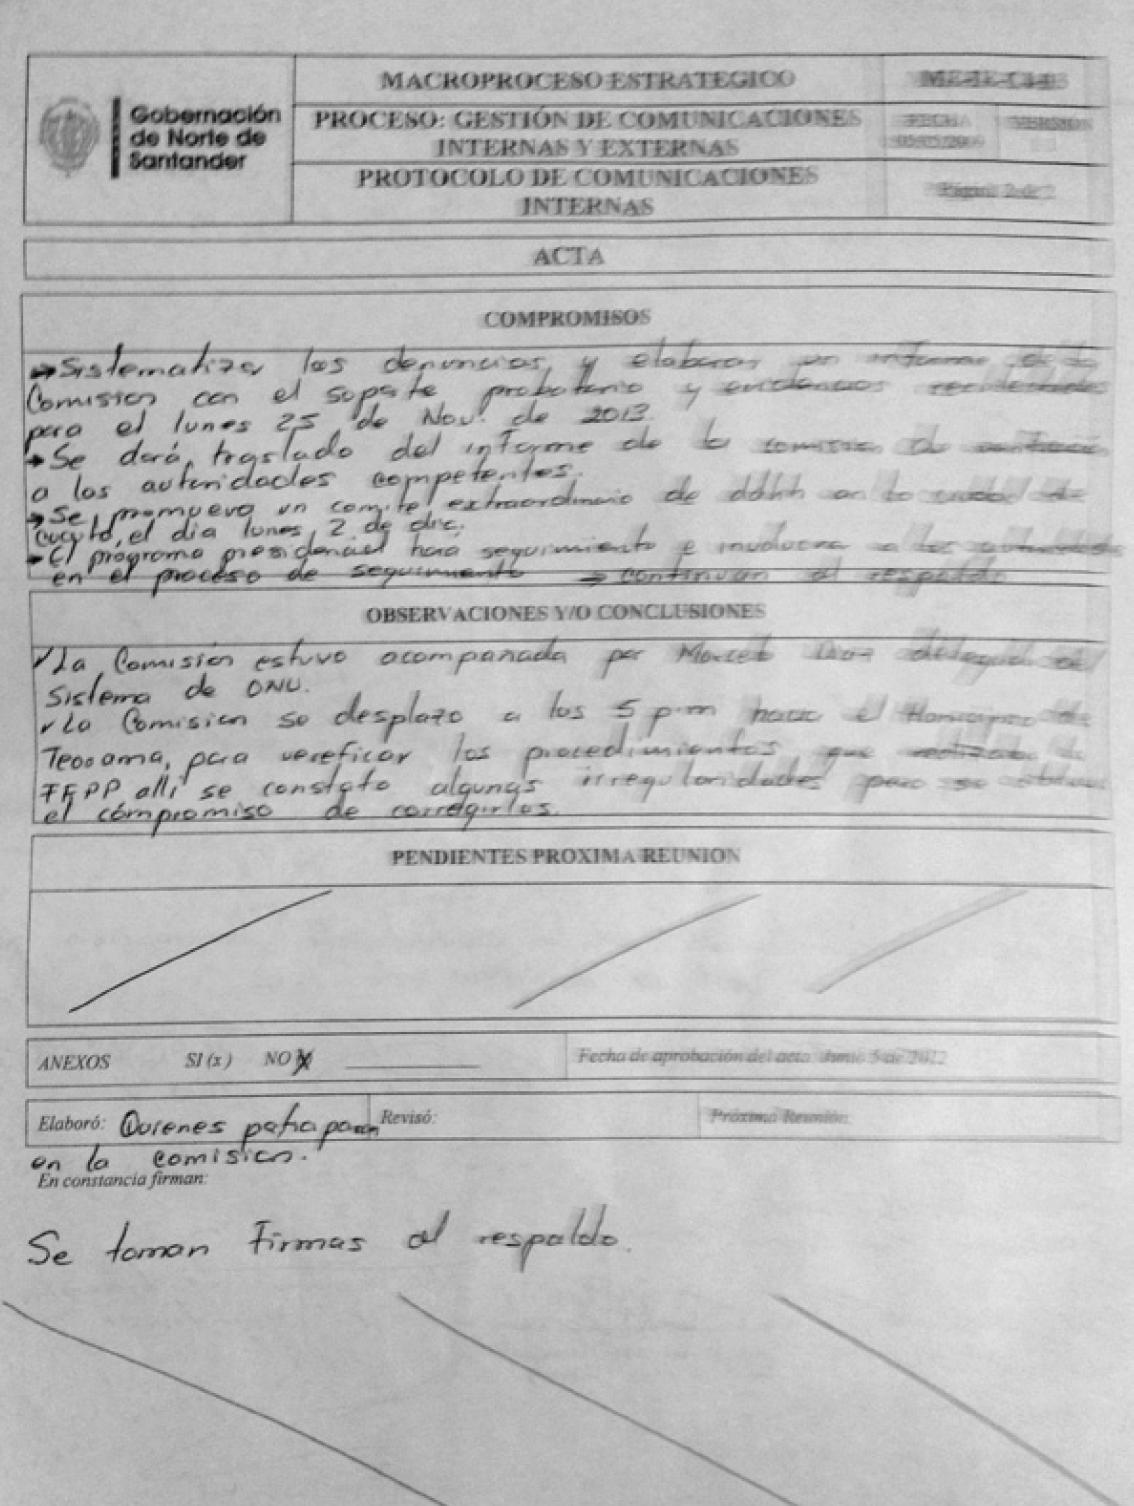 Gobernación
de Norte de
Santander
MACROPROCESO ESTRATEGICO
PROCESO: GESTIÓN DE COMUNICACIONES
INTERNAS Y EXTERNAS
PROTOCOLO DE COMUNICACIONES
INTERNAS
FECHA
VERSION
05/05/2009
Página 2 de 2
ACTA
COMPROMISOS
→ Sistematizar las denuncias y elaborar un informe de la
Comision con el soporte probatorio y evidencias recolectadas
para el lunes 25 de Nov. de 2013.
→ Se dará traslado del informe de la comision de
a las autoridades competentes.
→ Se promueva un comite extraordinario de ddhh en la ciudad de
Cucuta, el dia lunes 2 de dic.
→ El programa presidencial hara seguimiento e involucra a las
en el proceso de seguimiento → continuan al respaldo
OBSERVACIONES Y/O CONCLUSIONES
✓ La Comisión estuvo acompañada por Diaz del
Sistema de ONU.
✓ La Comision se desplazo a las 5 p.m hacia el Municipio de
Teorama, para vereficar los procedimientos que
FFPP alli se constato algunas irregularidades pero se
el compromiso de corregirlos.
PENDIENTES PROXIMA REUNION
ANEXOS SI (x) NO
Fecha de aprobación del acta Junio 5 de 2012
Elaboró: Quienes
Revisó:
Próxima Reunión
en la comision.
En constancia firman:
Se toman Firmas al respaldo.